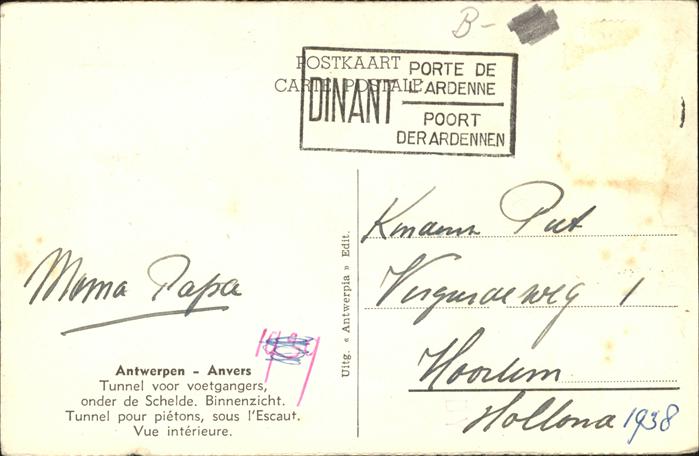 B-
POSTKAART
CARTE POSTALE
DINANT
PORTE DE
L'ARDENNE
POORT
DER ARDENNEN
Uitg. « Antwerpia » Edit.
Mama Papa
Antwerpen - Anvers
Tunnel voor voetgangers,
onder de Schelde. Binnenzicht.
Tunnel pour piétons, sous l'Escaut.
Vue intérieure.
Put
1
Haarlem
Holland 1938